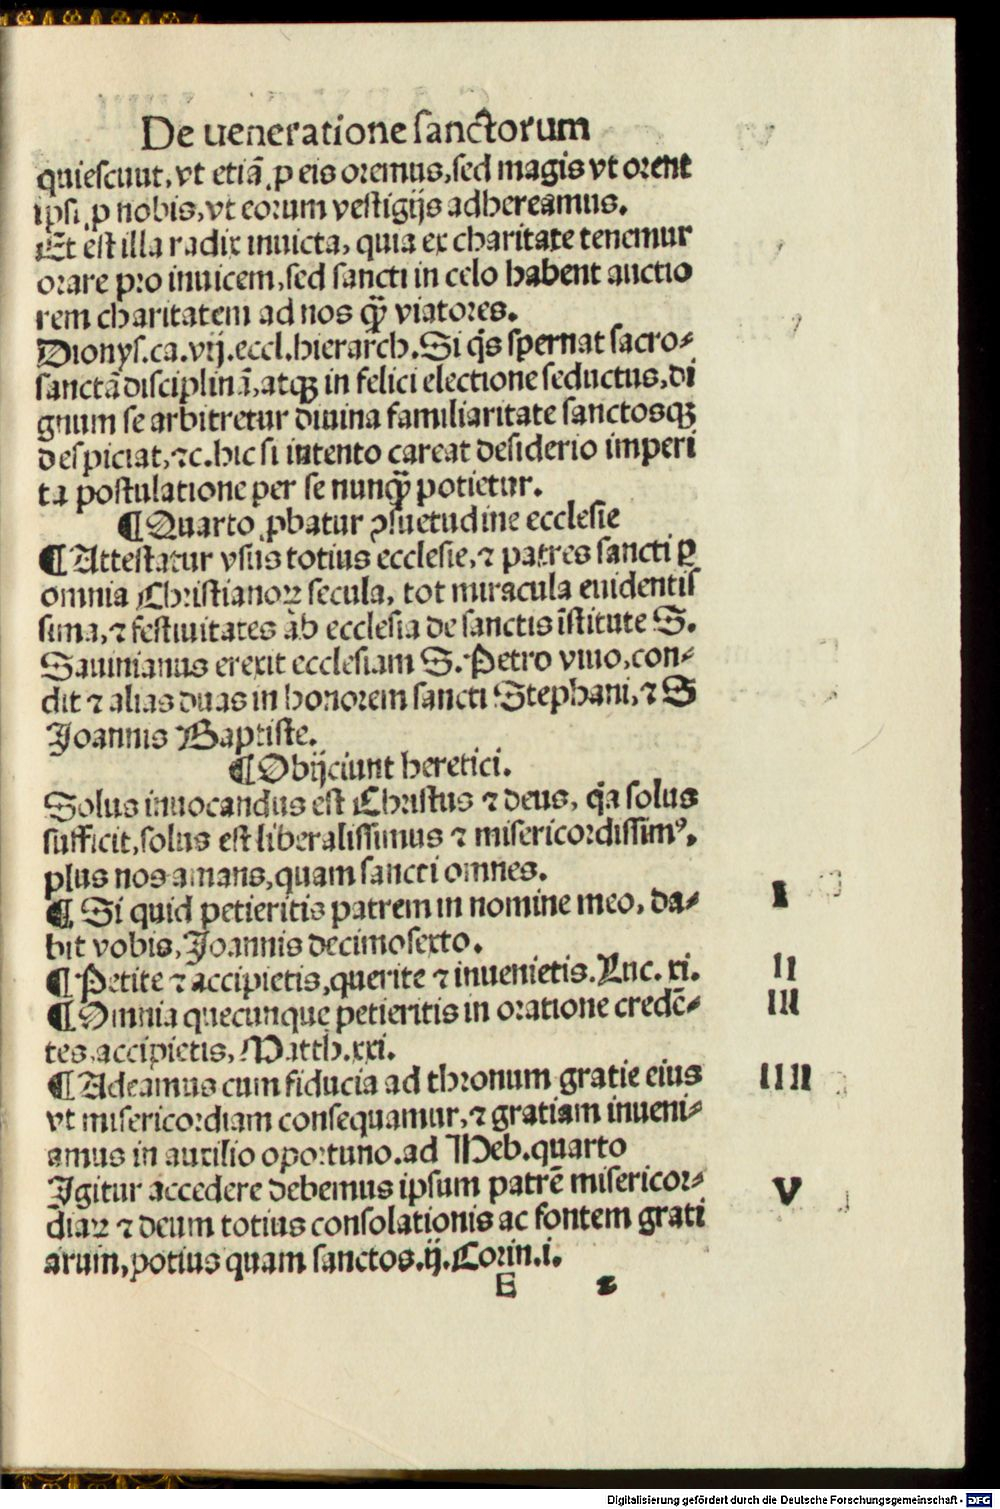 De ueneratione sanctorum
quiescunt, vt etiã ꝓ eis oremus, sed magis vt orent
ipsi ꝓ nobis, vt eorum vestigijs adhereamus.
Et est illa radix inuicta, quia ex charitate tenemur
orare pro inuicem, sed sancti in celo habent auctio
rem charitatem ad nos ꝙ̃ viatores.
Dionys. ca. vij. eccl. hierarch. Si q̃s spernat sacro⸗
sanctã disciplinã, atqꝫ in felici electione seductus, di
gnum se arbitretur diuina familiaritate sanctosqꝫ
despiciat, ⁊c. hic si intento careat desiderio imperi
ta postulatione per se nunꝙ̃ potietur.
¶ Quarto ꝓbatur ꝯsuetudine ecclesie
¶ Attestatur vsus totius ecclesie, ⁊ patres sancti ꝑ
omnia Christianoꝝ secula, tot miracula euidentis
sima, ⁊ festiuitates àb ecclesia de sanctis ĩstitute S.
Sauinianus erexit ecclesiam S. Petro viuo, con⸗
dit ⁊ alias duas in honorem sancti Stephani, ⁊ S
Joannis Baptiste.
¶ Obijciunt heretici.
Solus inuocandus est Christus ⁊ deus, q̃a solus
sufficit, solus est liberalissimus ⁊ misericordissimꝰ,
plus nos amans, quam sancti omnes.
¶ Si quid petieritis patrem in nomine meo, da⸗ I
bit vobis, Joannis decimosexto.
¶ Petite ⁊ accipietis, querite ⁊ inuenietis. Luc. xi. II
¶ Omnia quecunque petieritis in oratione credẽ⸗ III
tes, accipietis, Matth. xxi.
¶ Adeamus cum fiducia ad thronum gratie eius IIII
vt misericordiam consequamur, ⁊ gratiam inueni⸗
amus in auxilio oportuno. ad Heb. quarto
Igitur accedere debemus ipsum patrẽ misericor⸗ V
diaꝝ ⁊ deum totius consolationis ac fontem grati
arum, potius quam sanctos. ij. Corin. i.
E 2
Digitalisierung gefördert durch die Deutsche Forschungsgemeinschaft - DFG